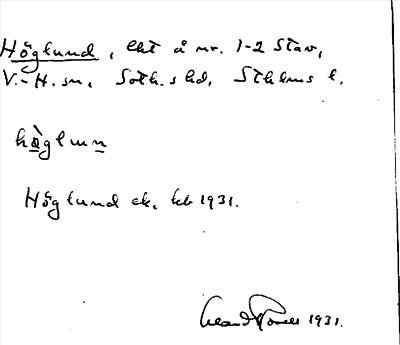 Höglund, lht å nr. 1-2 Stav,
V.-H. sn, Soth. shd, Sthlms l.
hö̀glun
Höglund ek. kb 1931.
1931.